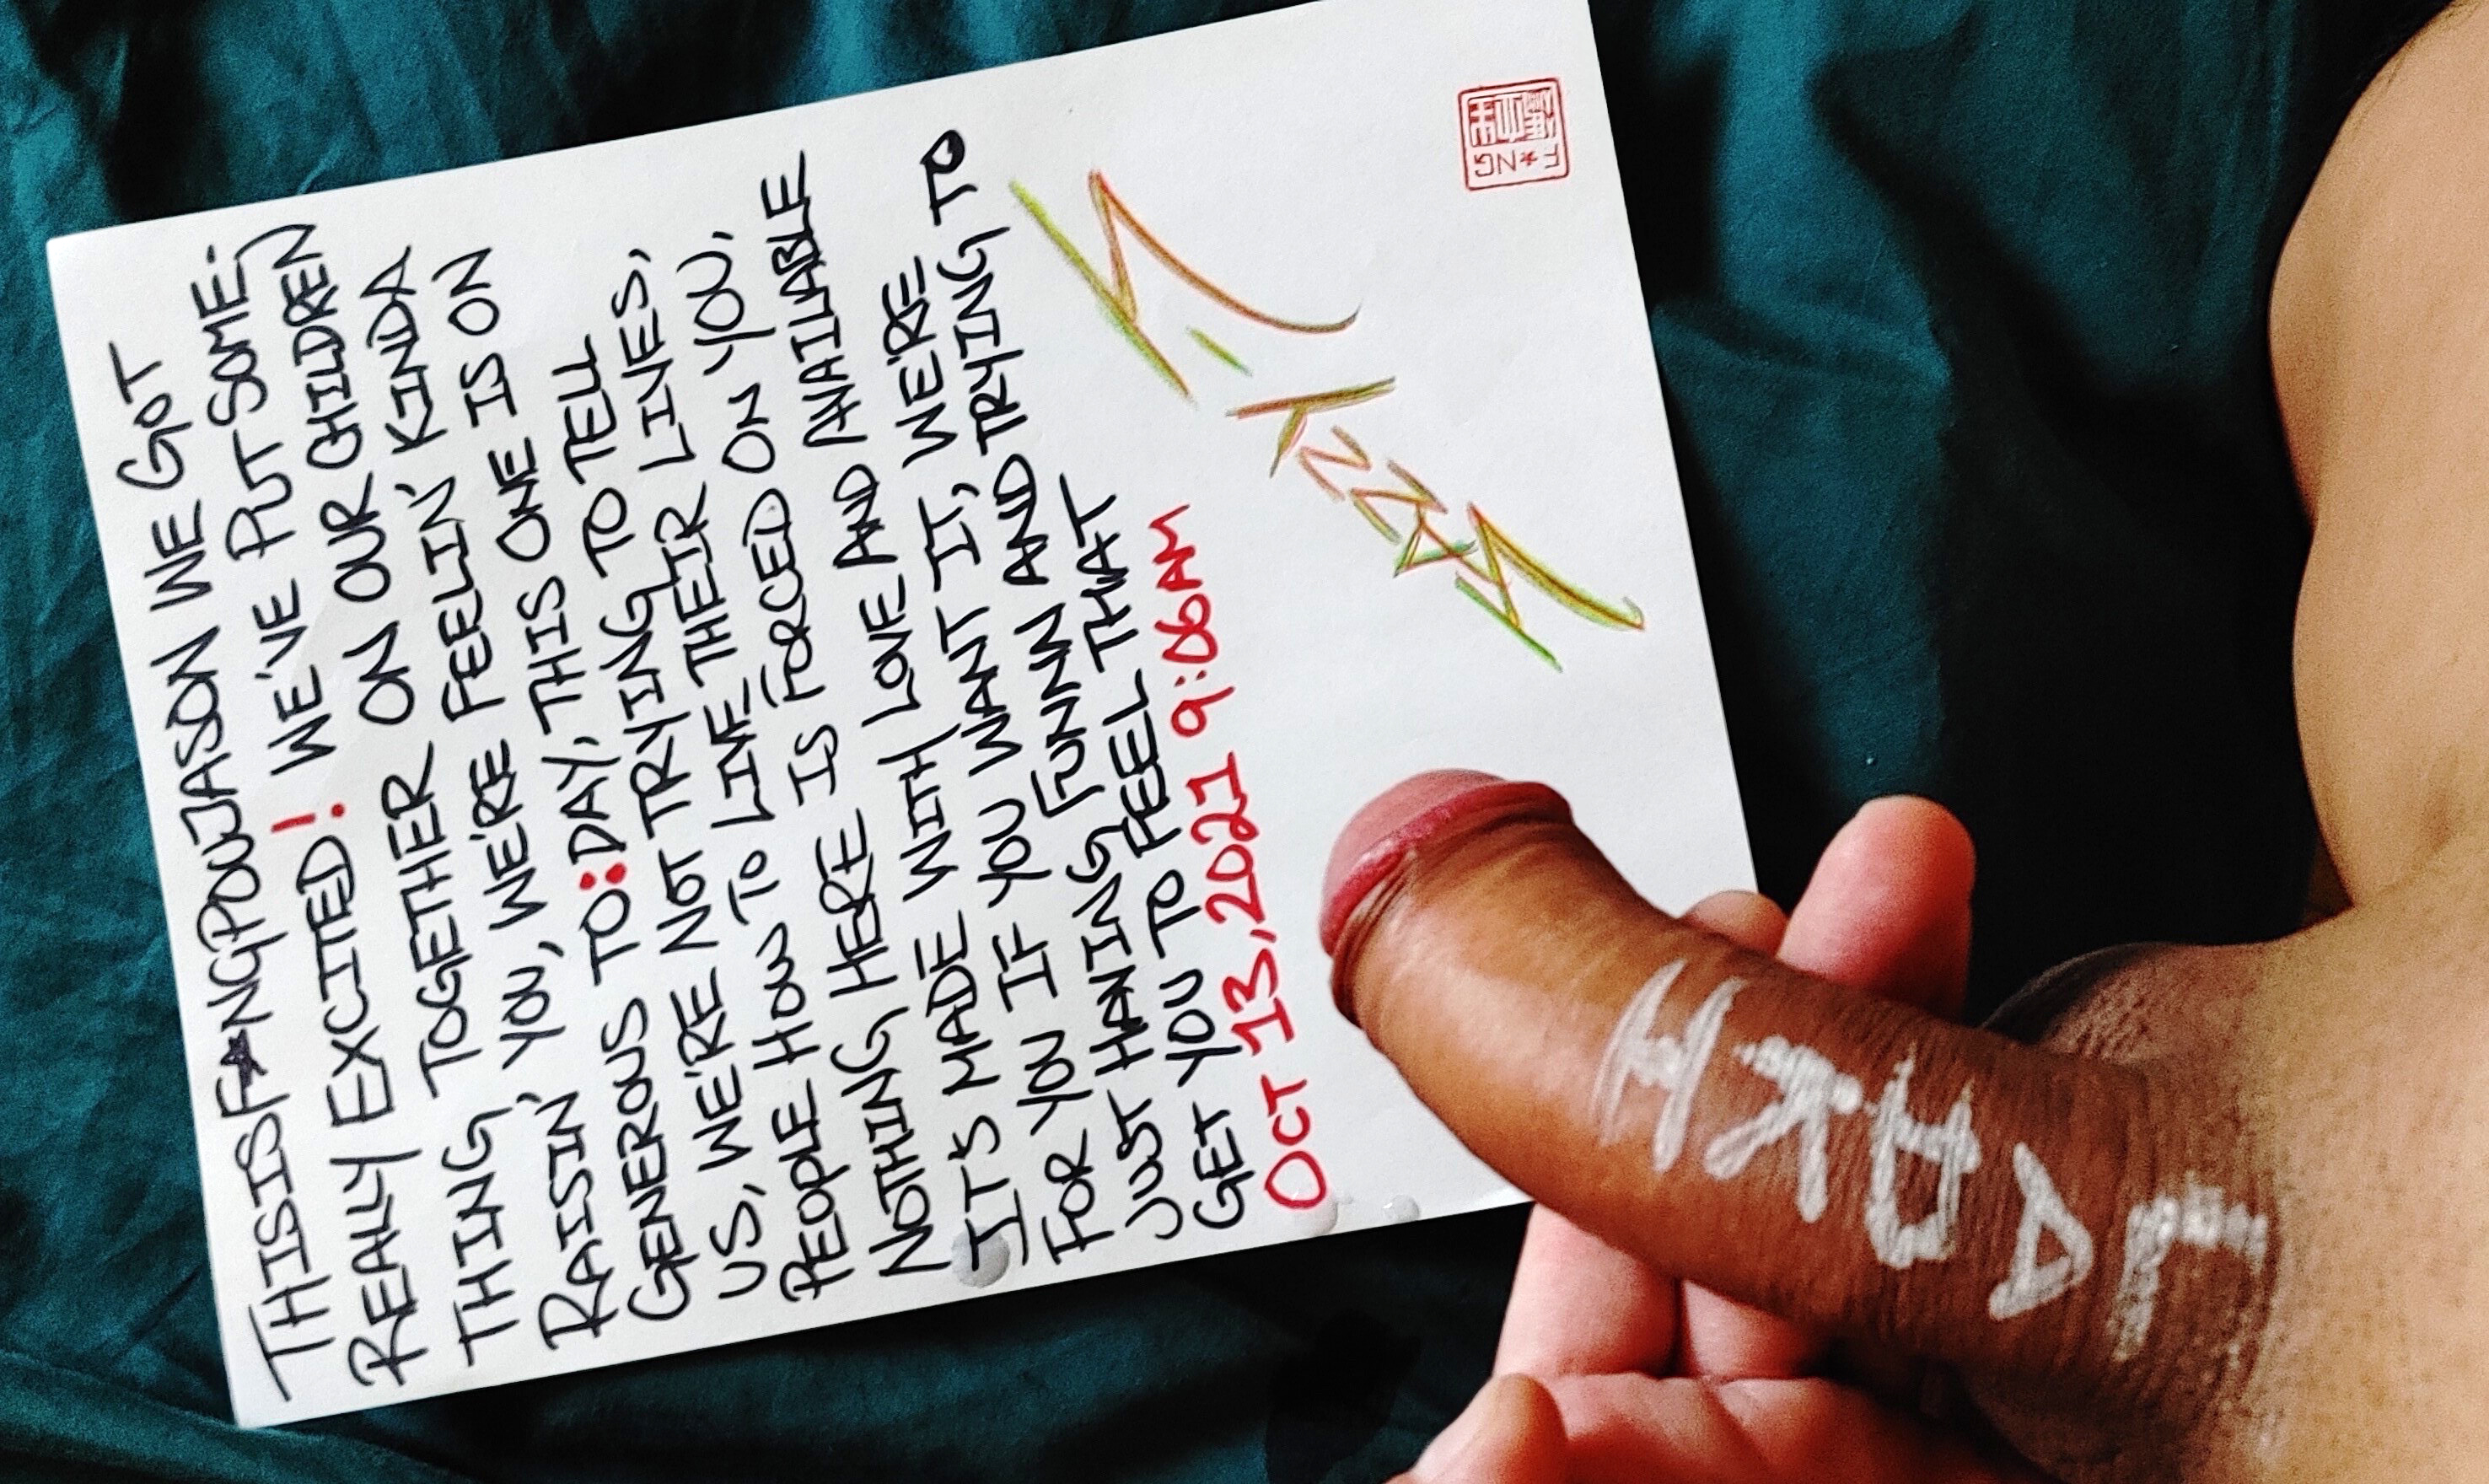 THISISFANGPOWJASON WE GOT
REALLY EXCITED! WE'VE PUT SOME-
THING TOGETHER ON OUR CHILDREN
RAISIN', YOU, WE'RE FEELIN' KINDA
GENEROUS TO:DAY, THIS ONE IS ON
US, WE'RE NOT TRYING TO TELL
PEOPLE HOW TO LIVE THEIR LIVES,
NOTHING HERE IS FORCED ON YOU,
IT'S MADE WITH LOVE AND AVAILABLE
FOR YOU IF YOU WANT IT, WE'RE
JUST HAVING FUNNN AND TRYING TO
GET YOU TO FEEL THAT
OCT 13, 2021 9:06AM
F★NG